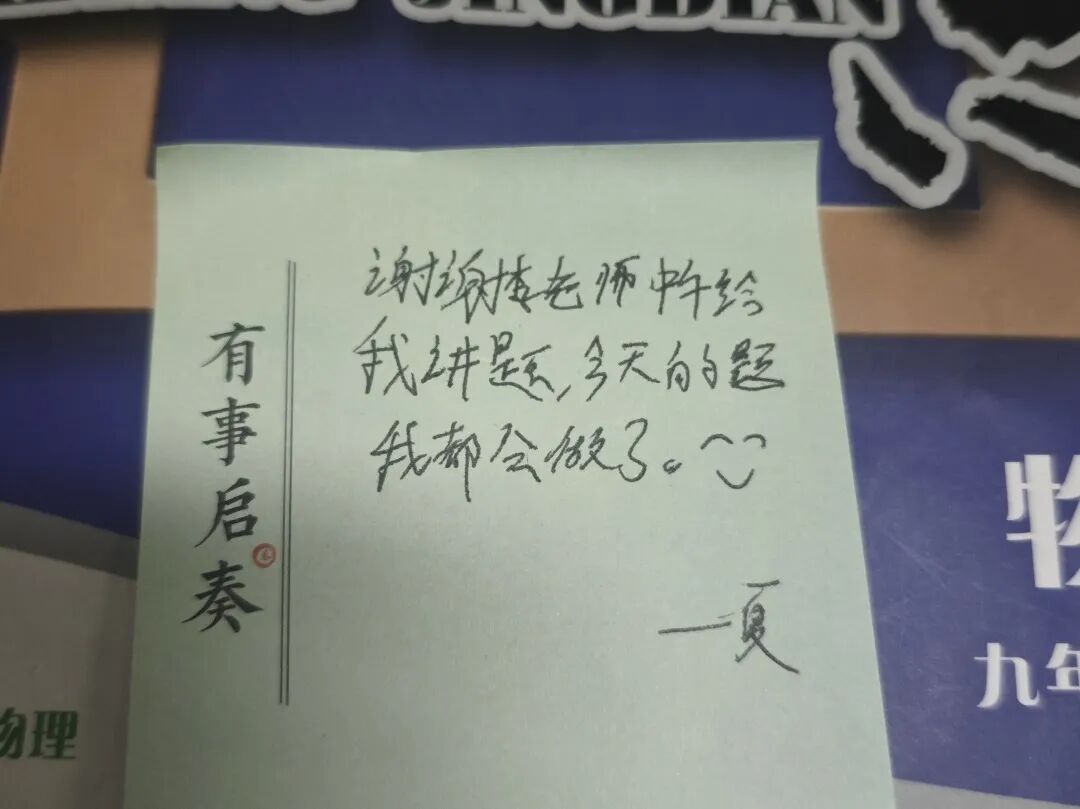 JINGDIAN
有事启奏
谢谢李老师中午给
我讲题,今天的题
我都会做了。
一夏
物
九年
物理